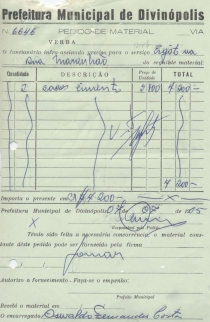 Prefeitura Municipal de Divinópolis
N. 6646 PEDIDO DE MATERIAL VIA
VERBA
O funcionário infra-assinado precisa para o serviço
rua Maranhão do seguinte material:
Quantidade DESCRIÇÃO Preço de Unidade TOTAL
2 sacos cimento 2.100 4.200-
4.200-
Importa o presente em 4.200-
Prefeitura Municipal de Divinópolis,
X
Responsável pelo Pedido
Tendo sido feita a necessária concorrência, o material constante
deste pedido pode ser fornecido pela firma
Autorizo o fornecimento - Faça-se o empenho:
Prefeito Municipal
Recebi o material em
O encarregado: Oswaldo Fernandes Costa